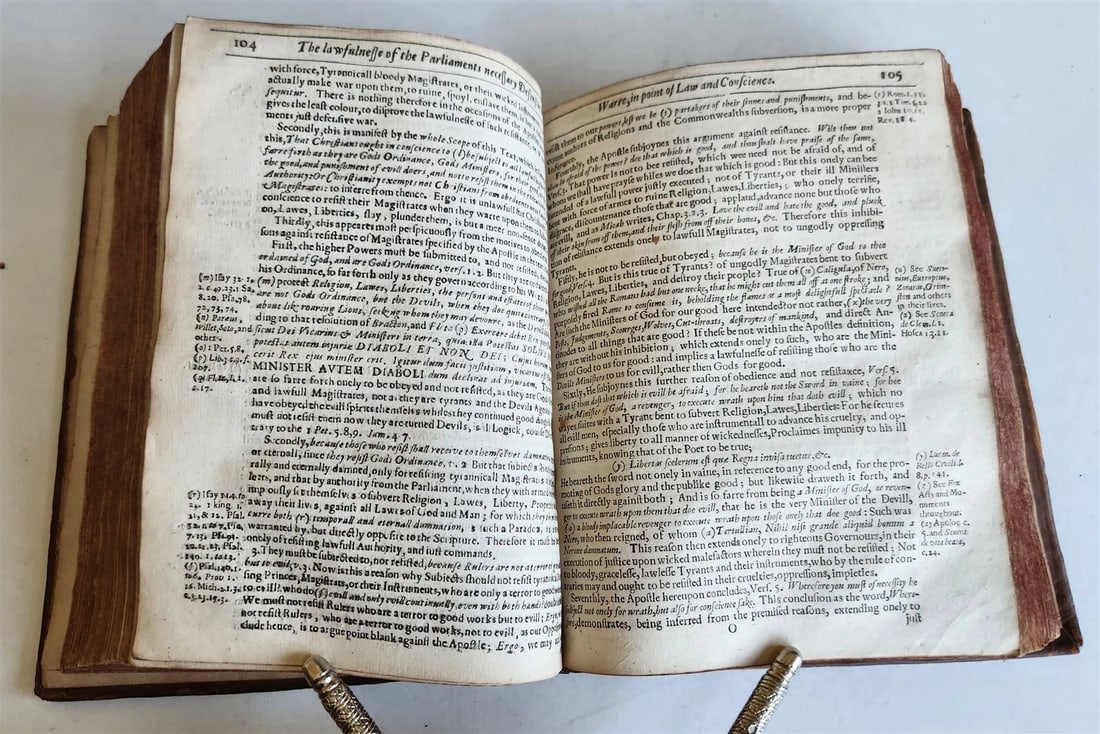 104 The lawfulnesse of the Parliaments necessary Defensive
with force, Tyrannicall bloody Magistrates, or their wicked
actually make war upon them, to ruine, spoyl, enslave them,
sequitur. There is nothing therefore in the occasions of the Apost
gives the least colour, to disprove the lawfulness of such resistance,
ments just defensive war.
Secondly, this is manifest by the whole Scope of this Text, which
this, That Christians ought in conscience to (l) be subject to all lawfull
farre forth as they are Gods Ordinance, Gods Ministers, for their
the good, and punishment of evill doers, and not to resist them in the
Authority: Or Christianity exempts not Christians from obedience
Magistrates: to inferre from thence, Ergo it is unlawfull for
conscience to resist their Magistrates when they warre upon them
on, Lawes, Liberties, slay, plunder them, is but a meer non-sence
Thirdly, this appeares most perspicuously from the motives
sons against resistance of Magistrates specified by the Apostle in the
First, the higher Powers must be submitted to, and not resisted,
ordained of God, and are Gods Ordinance, vers. 1. 2. But they are
his Ordinance, so far forth only as they govern according to his W
(m) protect Religion, Lawes, Liberties, the persons and estates of
are not Gods Ordinance, but the Devils, when they doe quite contrary
about like rouring Lions, seeking whom they may devoure, as the Devill
ding to that resolution of Bracton, and Fleta (p) Exercere debet Rex
sicut Dei Vicarius & Minister in terra, quia illa Potestas SOLIUS
potestas autem injuriæ DIABOLI ET NON DEI; Cujus
cerit Rex ejus minister erit, Igitur dum facit justitiam, vicarius
MINISTER AVTEM DIABOLI dum declinat ad injuriam,
are so farre forth onely to be obeyed and not resisted, as they are
and lawfull Magistrates, not as they are tyrants and the Devils Ag
have obeyed the evill spirits themselves whilest they continued good
must not resist them now they are turned Devils, is ill Logick, course
trary to the 1 Pet. 5. 8, 9. Iam. 4 7.
Secondly, because those who resist shall receive to themselves damn
or eternall, since they resist Gods Ordinance, v. 2 But that subjects
rally and eternally damned, only for resisting tyrannicall Magistrates
lers, and that by authority from the Parliament, when they with
impiously set themselves to subvert Religion, Lawes, Liberty, Proper
away their lives, against all Laws of God and Man; for which they
curre both (r) temporall and eternall damnation, is such a Paradox,
warranted by, but directly opposite to the Scripture. Therefore it must
onely of resisting lawfull Authority, and iust commands.
3. They must be subjected to, not resisted, because Rulers are not a terror
but to evill, v. 3. Now is this a reason why Subjects should not resist
sing Princes, Magistrates, or their Instruments, who are only a terror to good
to evill? who do (s) evill and only evill continually, even with both hands?
We must not resist Rulers who are a terror to good works but to evill; Ergo,
not resist Rulers, who are a terror to good works, not to evill, as our
clude hence, is to argue point blank against the Apostle; Ergo, we may
(m) Isay 32. 1,
8. 20. Psa. 78,
72, 73, 74.
(n) Pareus,
Willet, Soto, and
others.
(o) 1 Pet. 5. 8.
(p) Lib.
207.
(q) Fleta, l. 1.
c. 17.
(r) Isay
Psal.
(s) Psal. 140. 1.
106. Prov 1.
16. Mich. 2. 1, 2.
Warre, in point of Law and Conscience. 105
sist them to our powers, lest we be (t) partakers of their sinnes and punishments, and be-
come authors of Religions and the Commonwealths subversion, is a more proper
Inference.
Fourthly, the Apostle subjoynes this argument against resistance. Wilt thou not
then be afraid of the power? doe that which is good, and thou shalt have praise of the same,
vers. 3. That power is not to be resisted, which we need not be afraid of, and of
whom we shall have prayse whiles we doe that which is good: But this onely can bee
intended of a lawfull power justly executed; not of Tyrants, or their ill Ministers
armed with force of armes to ruine Religion, Lawes, Liberties,; who onely terrifie,
disgrace, discountenance those that are good; appland, advance none but those who
are evill, and as Micah writes, Chap. 3. 2, 3. Love the evill and hate the good, and pluck
off their skin from off them, and their flesh from off their bones, &c. Therefore this inhibi-
tion of resistance extends onely to lawfull Magistrats, not to ungodly oppressing
Tyrants.
Fifthly, he is not to be resisted, but obeyed; because he is the Minister of God to thee
for good, Vers. 4. But is this true of Tyrants? of ungodly Magistrates bent to subvert
Religion, Lawes, Liberties, and destroy their people? True of (u) Caligula, of Nero,
who wished all the Romans had but one necke, that he might cut them all off at one stroke; and
purposely fired Rome to consume it, beholding the flames as a most delightfull spectacle?
Are such the Ministers of God for our good here intended? or not rather, (x) the very
Pests, Judgements, Scourges, Wolves, Cut-throats, destroyers of mankind, and direct An-
tinodes to all things that are good? If these be not within the Apostles definition,
they are without his inhibition, which extends onely to such, who are the Mini-
sters of God to us for good: and implies a lawfulness of resisting those who are the
Devils Ministers to us for evill, rather then Gods for good.
Sixtly, He subjoynes this further reason of obedience and not resistance, Vers. 5.
But if thou dost that which is evill be afraid; for he beareth not the Sword in vaine; for hee
is the Minister of God, a revenger, to execute wrath upon him that doth evill; which no
wayes suites with a Tyrant bent to subvert Religion, Lawes, Liberties: For he secures
all evill men, especially those who are instrumentall to advance his cruelty, and op-
pressions; gives liberty to all manner of wickednesses, Proclaimes impunity to his ill
instruments, knowing that of the Poet to be true;
(y) Libertas scelerum est que Regna invisa tuetur, &c.
He beareth the sword not onely in vaine, in reference to any good end, for the pro-
moting of Gods glory and the publike good; but likewise draweth it forth, and
useth it directly against both; And is so farre from being a Minister of God, or reven-
ger to execute wrath upon them that doe evill, that he is the very Minister of the Devill,
(z) a bloody implacable revenger to execute wrath upon those onely that doe good: Such was
Nero, who then reigned, of whom (a) Tertullian, Nihil nisi grande aliquid bonum a
Nerone damnatum. This reason then extends onely to righteous Governours, in their
execution of justice upon wicked malefactors wherein they must not be resisted; Not
to bloody, gracelesse, lawlesse Tyrants and their instruments, who by the rule of con-
traries may and ought to be resisted in their cruelties, oppressions, impieties.
Seventhly, the Apostle hereupon concludes, Vers. 5. Wherefore you must of necessity be
subject not only for wrath, but also for conscience sake. This conclusion as the word, Where-
fore, demonstrates, being inferred from the premised reasons, extending onely to
O just
(t) Rom. 1. 31,
32. 1 Tim. 5. 22
2 John 10. 11.
Rev. 18. 4.
(u) See Sueto-
nius, Eutropius,
Zonaras, Grim-
ston and others
in their lives.
(x) See Seneca
de Clem. l. 1.
Hosea 13. 11.
(y) Lucan. de
Bello Civili. l.
8. p. 141.
(z) See Fox
Acts and Mo-
numents
throughout.
(a) Apolog. c.
5. and Seneca
de vita beata,
c. 24.